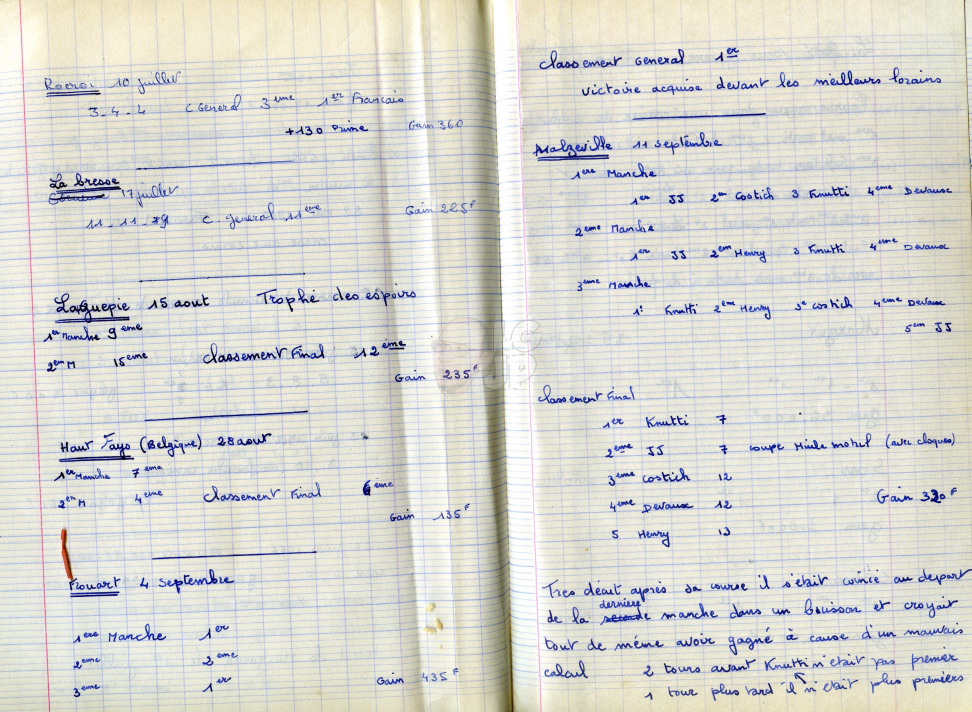 Rocroi 10 juillet
3-4-4 C General 3eme 1er Francais
+130 Prime Gain 360
La bresse
17 juillet
11-11-9 C. general 11eme Gain 225F
Laguepie 15 aout Trophé des espoirs
1er Manche 9eme
2em M 15eme Classement Final 12eme
Gain 235F
Haut Fays (Belgique) 28 aout
1er Manche 7eme
2em M 4eme Classement Final 6eme
Gain 135F
Frouart 4 septembre
1ere Manche 1er
2eme 2eme
3eme 1er Gain 435F
Classement General 1er
victoire acquise devant les meilleurs lorains
Malzeville 11 septembre
1ere Manche
1er JJ 2em Costich 3 Knutti 4eme Devaux
2eme Manche
1er JJ 2em Henry 3 Knutti 4eme Devaux
3eme Manche
1er Knutti 2em Henry 3e Costich 4eme Devaux
5em JJ
Classement Final
1er Knutti 7
2eme JJ 7 coupe Huile motul (avec cloques)
3eme Costich 12
4eme Devaux 12 Gain 320F
5 Henry 13
Tres décut après sa course il s'était coincé au depart
de la dernière manche dans un buisson et croyait
tout de même avoir gagné à cause d'un mauvais
calcul 2 tours avant Knutti n'était pas premier
1 tour plus tard il n'était plus premiers